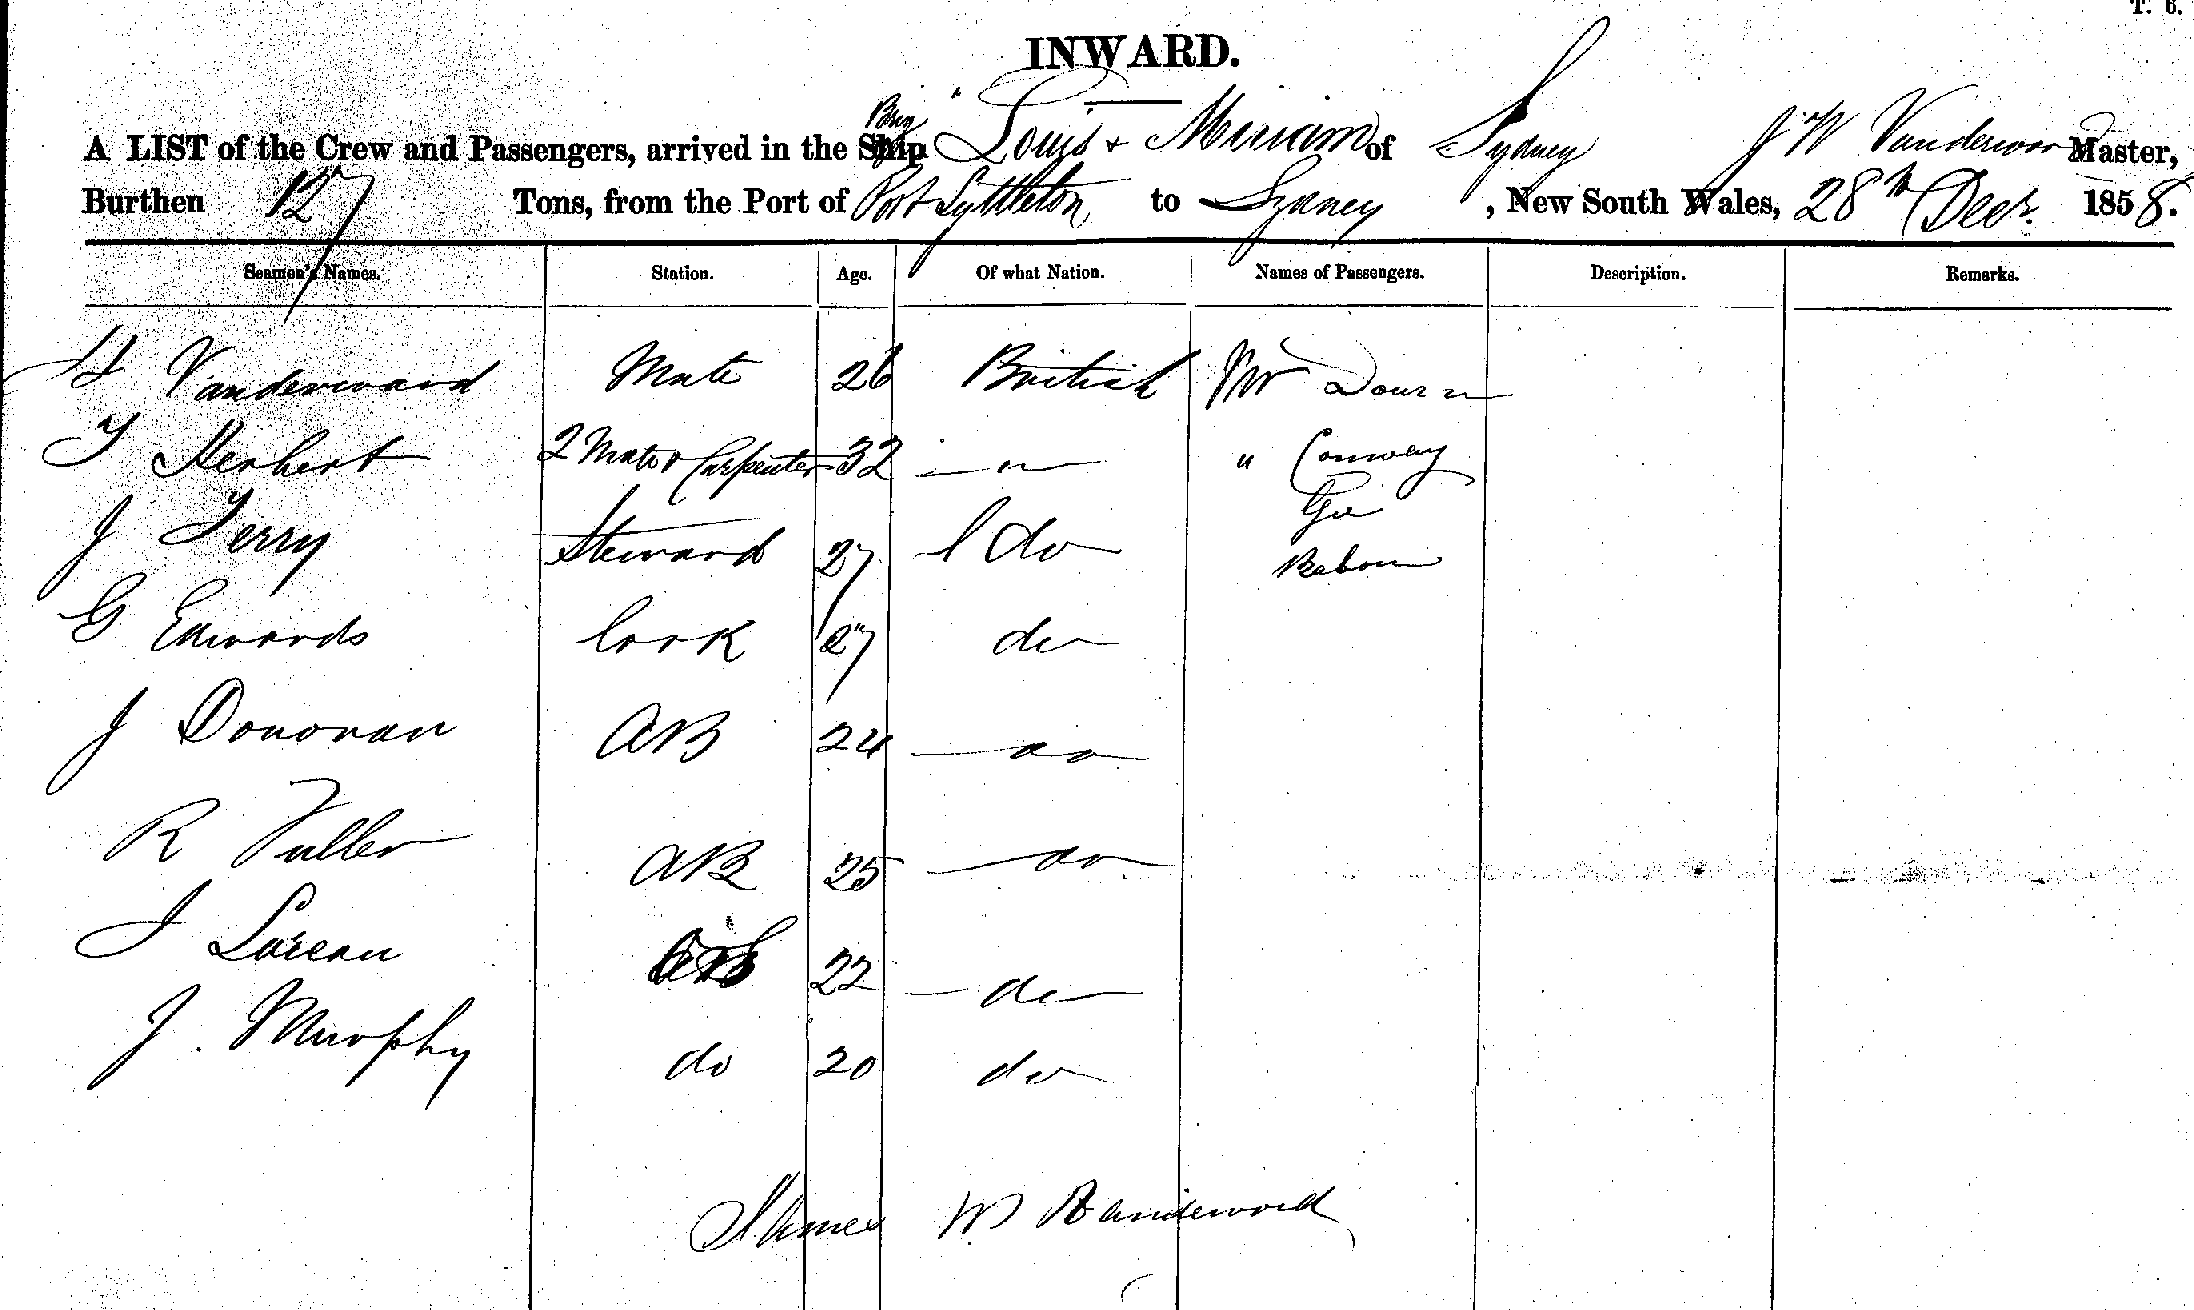 T. 6.
INWARD.
A LIST of the Crew and Passengers, arrived in the Ship Brig "Louis & Miriam of Sydney J W Vanderwoord Master,
Burthen 127 Tons, from the Port of Port Lyttleton to Sydney, New South Wales, 28th Decr. 1858.
Seamen's Names. Station. Age. Of what Nation. Names of Passengers. Description. Remarks.
Vanderwoord Mate 26 British Mr
T Herbert 2 Mate & Carpenter 32 " " Conway
Gee
J Terry Steward 27 do
G Edwards Cook 27 do
J Donovan AB 24 do
R Fuller AB 25 do
J AB 22 do
J. Murphy do 20 do
James W Vanderwoord